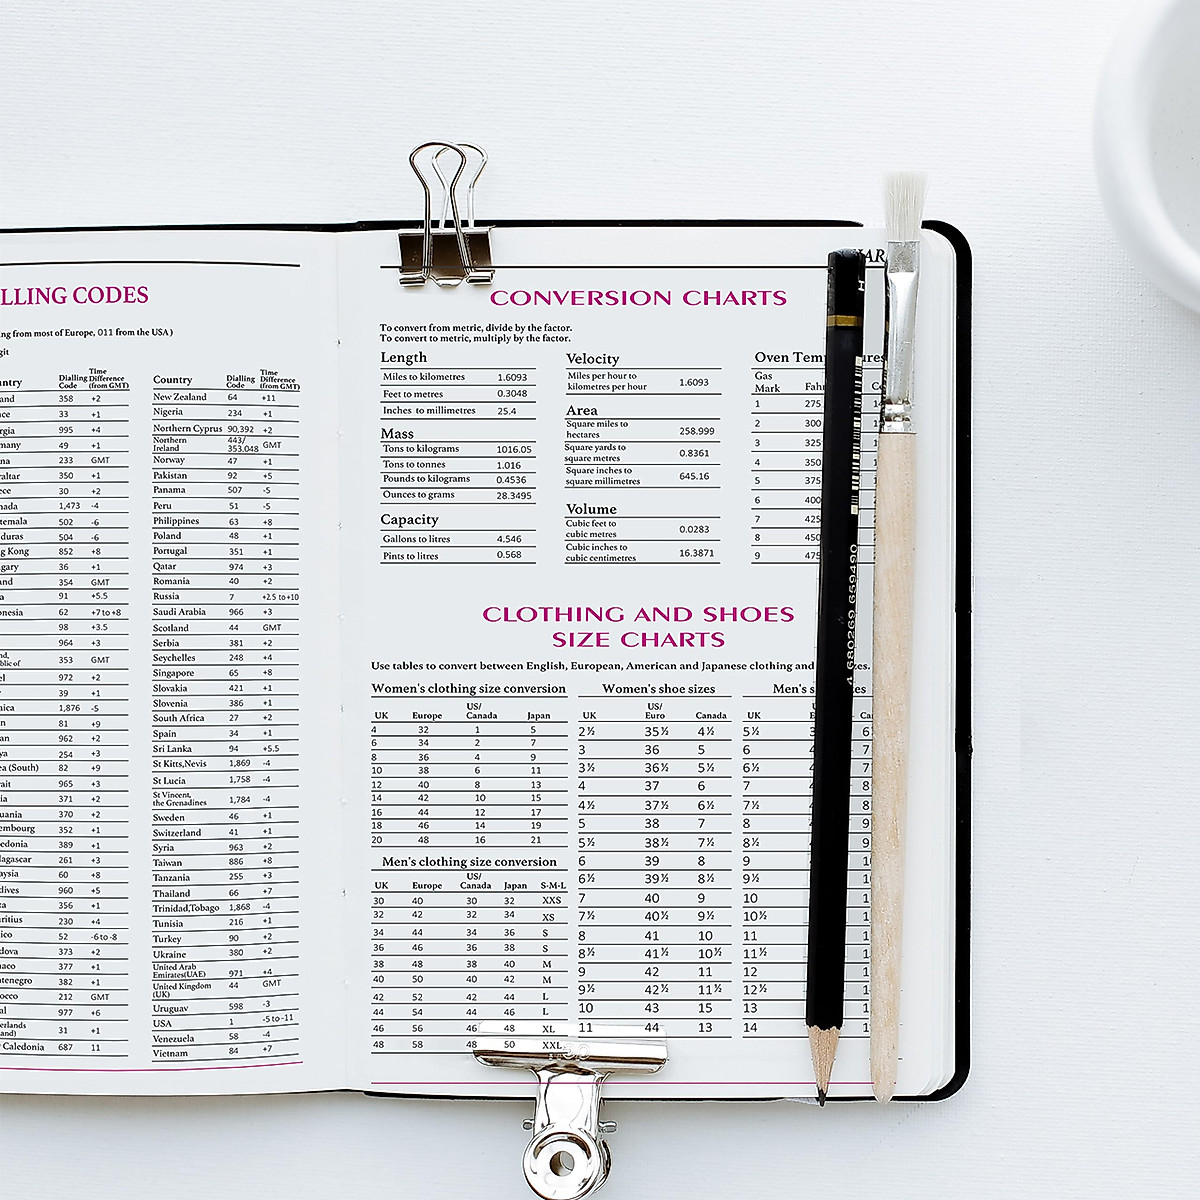 LLING CODES
ing from most of Europe, 011 from the USA)
git
Country Dialling Code Time Difference (from GMT)
358 +2
33 +1
995 +4
49 +1
233 GMT
350 +1
30 +2
1,473 -4
502 -6
504 -6
852 +8
36 +1
354 GMT
91 +5.5
62 +7 to +8
98 +3.5
964 +3
353 GMT
972 +2
39 +1
1,876 -5
81 +9
962 +2
254 +3
(South) 82 +9
965 +3
371 +2
370 +2
352 +1
389 +1
261 +3
60 +8
960 +5
356 +1
230 +4
52 -6 to -8
373 +2
377 +1
382 +1
212 GMT
977 +6
31 +1
Caledonia 687 11
Country Dialling Code Time Difference (from GMT)
New Zealand 64 +11
Nigeria 234 +1
Northern Cyprus 90,392 +2
Northern Ireland 443/ 353.048 GMT
Norway 47 +1
Pakistan 92 +5
Panama 507 -5
Peru 51 -5
Philippines 63 +8
Poland 48 +1
Portugal 351 +1
Qatar 974 +3
Romania 40 +2
Russia 7 +2.5 to +10
Saudi Arabia 966 +3
Scotland 44 GMT
Serbia 381 +2
Seychelles 248 +4
Singapore 65 +8
Slovakia 421 +1
Slovenia 386 +1
South Africa 27 +2
Spain 34 +1
Sri Lanka 94 +5.5
St Kitts,Nevis 1,869 -4
St Lucia 1,758 -4
St Vincent, the Grenadines 1,784 -4
Sweden 46 +1
Switzerland 41 +1
Syria 963 +2
Taiwan 886 +8
Tanzania 255 +3
Thailand 66 +7
Trinidad,Tobago 1,868 -4
Tunisia 216 +1
Turkey 90 +2
Ukraine 380 +2
United Arab Emirates(UAE) 971 +4
United Kingdom (UK) 44 GMT
Uruguay 598 -3
USA 1 -5 to -11
Venezuela 58 -4
Vietnam 84 +7
CONVERSION CHARTS
To convert from metric, divide by the factor.
To convert to metric, multiply by the factor.
Length
Miles to kilometres 1.6093
Feet to metres 0.3048
Inches to millimetres 25.4
Mass
Tons to kilograms 1016.05
Tons to tonnes 1.016
Pounds to kilograms 0.4536
Ounces to grams 28.3495
Capacity
Gallons to litres 4.546
Pints to litres 0.568
Velocity
Miles per hour to
kilometres per hour 1.6093
Area
Square miles to
hectares 258.999
Square yards to
square metres 0.8361
Square inches to
square millimetres 645.16
Volume
Cubic feet to
cubic metres 0.0283
Cubic inches to
cubic centimetres 16.3871
Oven Tem ures
Gas
Mark Fahr
1 275
2 300
3 325
4 350
5 375
6 400
7 425
8 450
9 475
4 680269 659490
CLOTHING AND SHOES
SIZE CHARTS
Use tables to convert between English, European, American and Japanese clothing and zes.
Women's clothing size conversion
UK Europe US/ Canada Japan
4 32 1 5
6 34 2 7
8 36 4 9
10 38 6 11
12 40 8 13
14 42 10 15
16 44 12 17
18 46 14 19
20 48 16 21
Men's clothing size conversion
UK Europe US/ Canada Japan S-M-L
30 40 30 32 XXS
32 42 32 34 XS
34 44 34 36 S
36 46 36 38 S
38 48 38 40 M
40 50 40 42 M
42 52 42 44 L
44 54 44 46 L
46 56 46 48 XL
48 58 48 50 XXL
Women's shoe sizes
UK US/ Euro Canada
2½ 35½ 4½
3 36 5
3½ 36½ 5½
4 37 6
4½ 37½ 6½
5 38 7
5½ 38½ 7½
6 39 8
6½ 39½ 8½
7 40 9
7½ 40½ 9½
8 41 10
8½ 41½ 10½
9 42 11
9½ 42½ 11½
10 43 15
11 44 13
Men's s es
UK
5½
6
6½
7
7½
8
8½
9
9½
10
10½
11
11½
12
12½
13
14